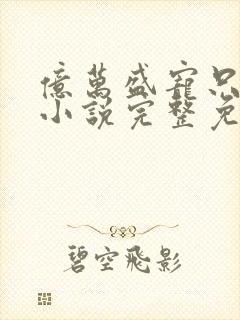 億萬盛寵只
小說完整免
碧空飛影